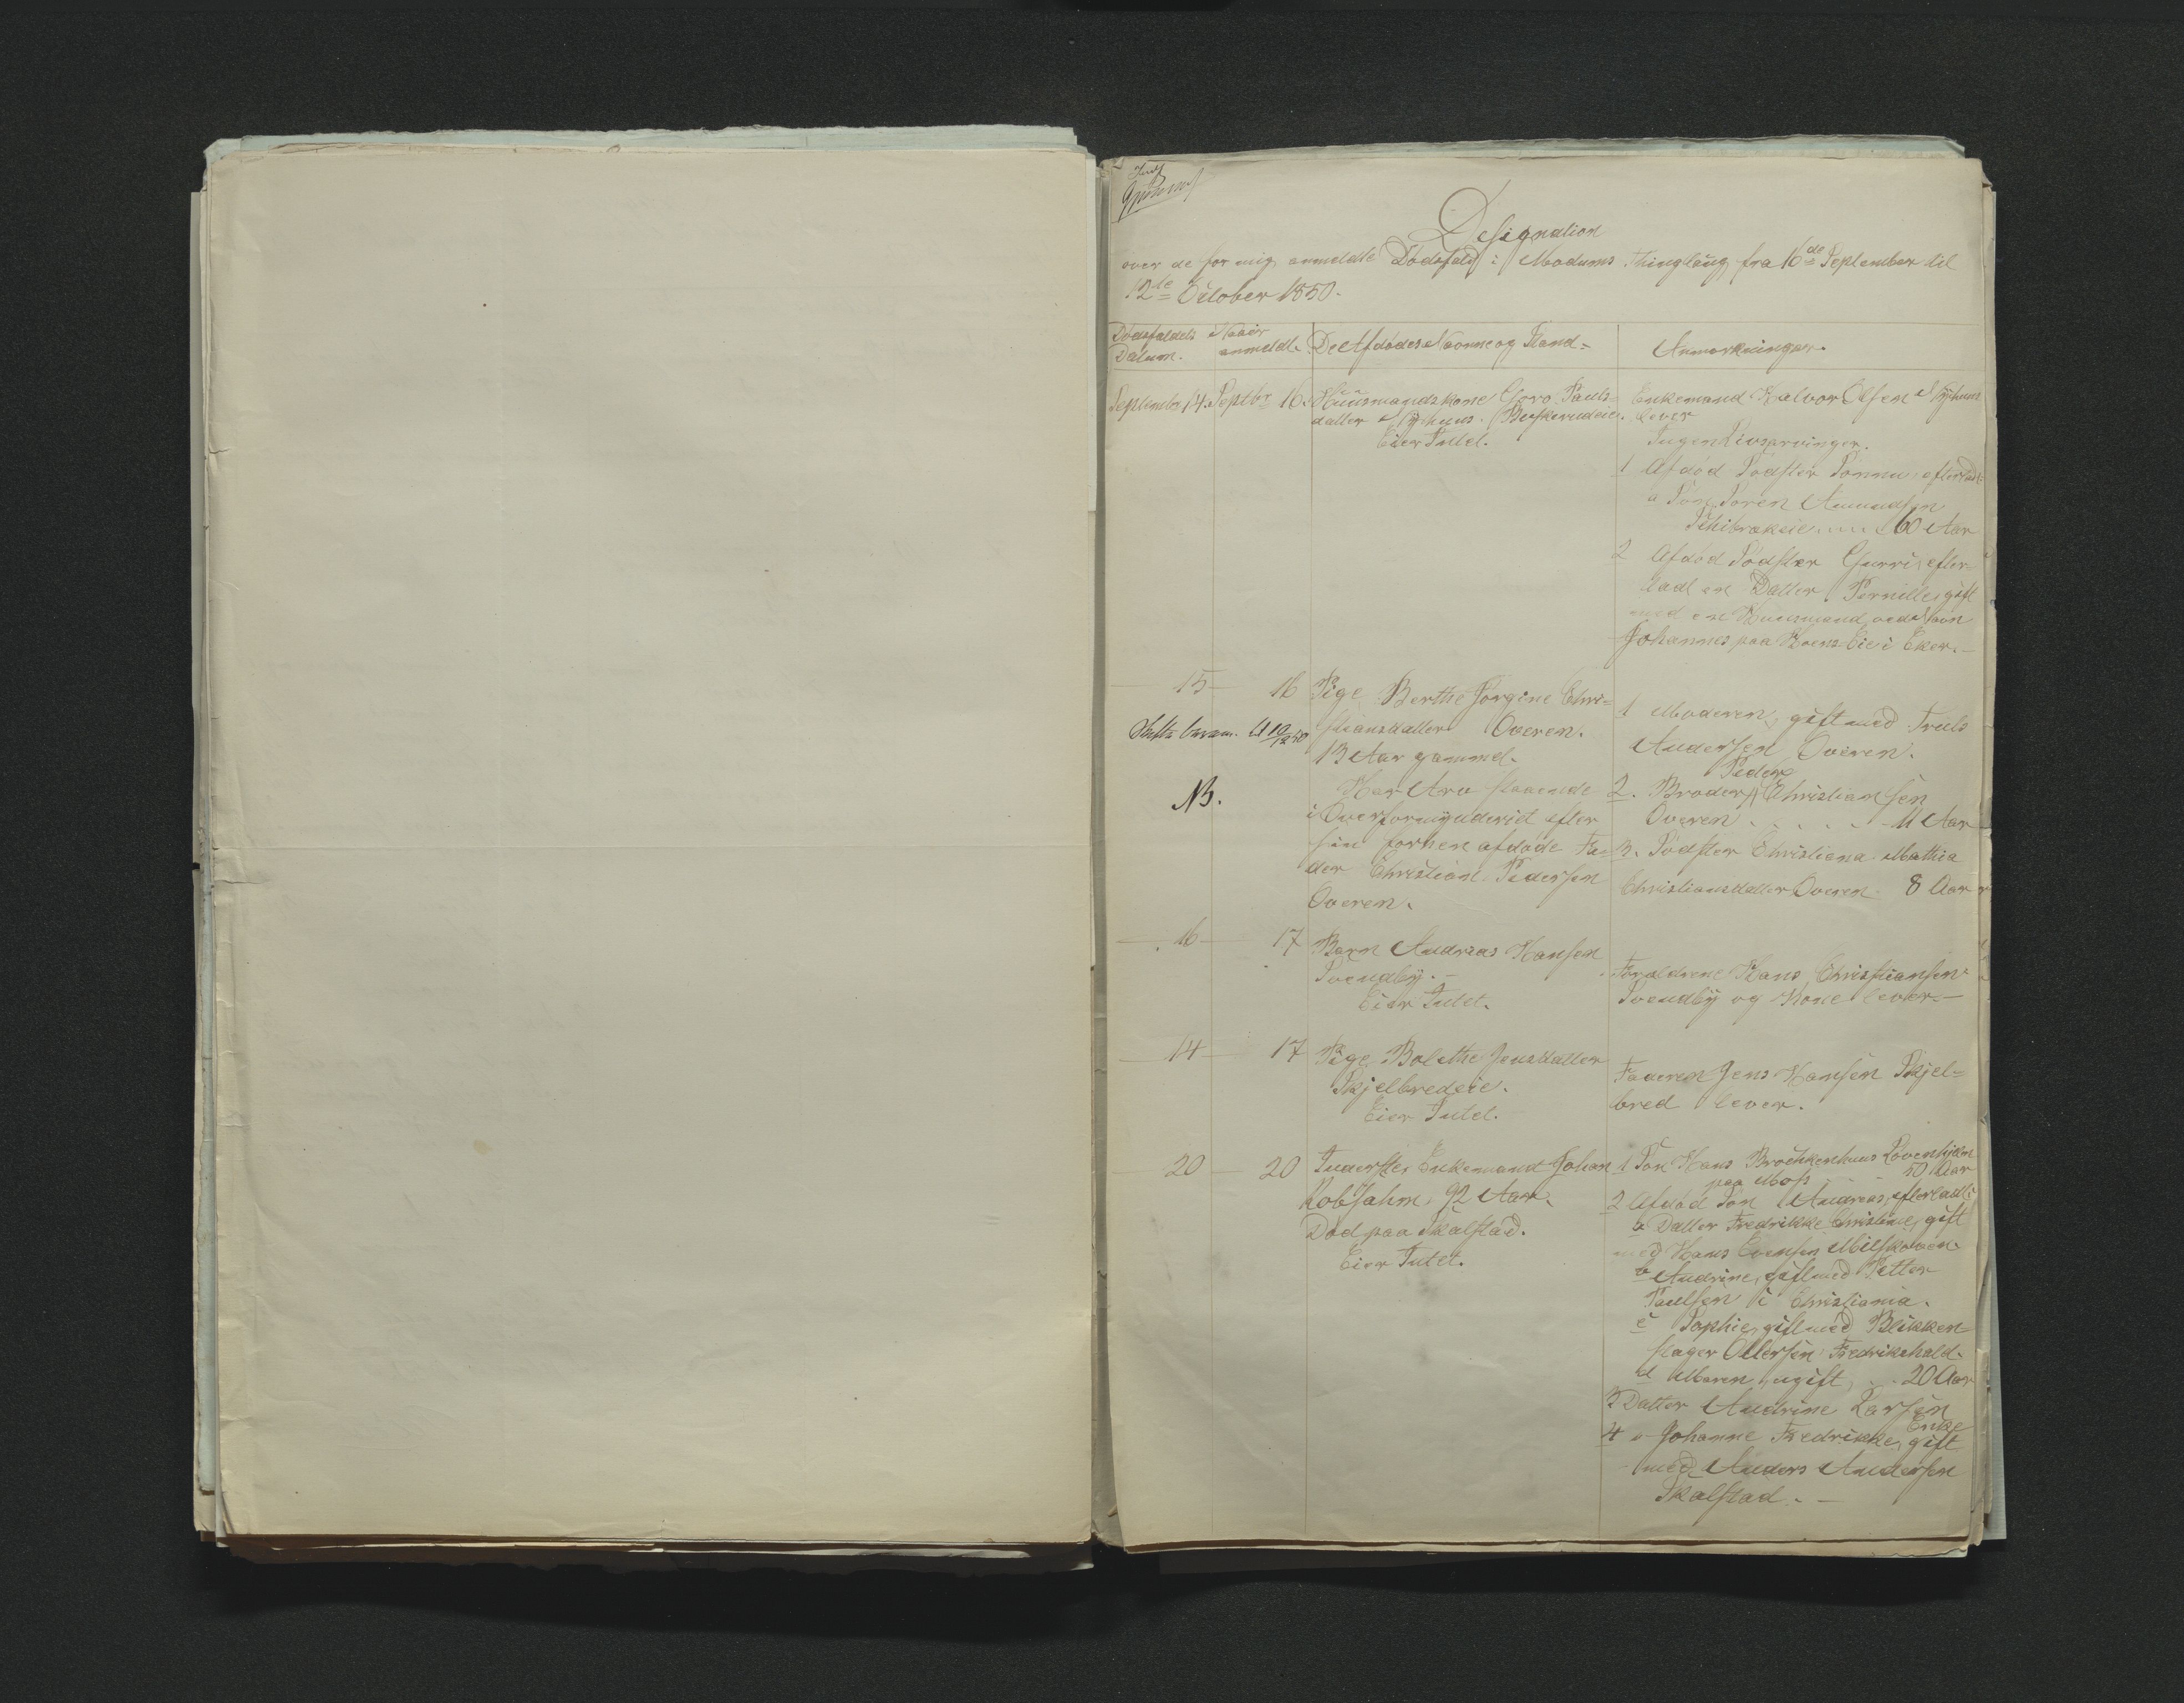 Designation
over de for mig anmeldte Dødsfald i Modums Thinglaug fra 16de September til
12te October 1850.
Dødsfaldets Datum.
Naar anmeldt.
De Afdødes Navne og Stand.
Anmærkninger.
September 14. Septbr 16. Huusmandskone Goro Pauls-
datter Nyhuus.
Eier Intet.
Enkemand Halvor Olsen Nyhuus
lever
Ingen Livsarvinger.
1 Afdød Sødster efterladt
a Søn Søren Amundsen
60 Aar
2 Afdød Sødster Gurri, efter-
ladt en Datter Pernille, gift
med en Huusmand ved Navn
Johannes paa Hoens Eie i Eker.
15 – 16 Pige Berthe Jørgine Chri-
stiansdatter Overen.
13 Aar gammel.
NB. Har Arv staaende
i Overformynderiet efter
sin forhen afdøde Fa-
der Christian Pedersen
Overen.
1 Moderen, gift med Truls
Andersen Overen.
2. Broder Peder Christiansen
Overen . . . . . 11 Aar
3. Sødster Christiana Mathia
Christiansdatter Overen 8 Aar
16 – 17 Barn Andreas Hansen
Svendby.
Eier Intet.
Forældrene Hans Christiansen
Svendby og Kone lever.
14 – 17 Pige Bolethe Jensdatter
Skjelbredeie.
Eier Intet.
Faderen Jens Hansen Skjel-
bred lever.
20 – 20 Inderster Enkemand Johan
Robsahm, 92 Aar.
Død paa Skalstad.
Eier Intet.
1 Søn Hans Brochkenhuus Løvenhjelm
paa Moss 50 Aar
2 Afdød Søn Andreas, efterladt:
a Datter Fredrikke Christine, gift
med Hans Evensen
b Andrine, gift med Petter
Paulsen i Christiania.
c Sophie, gift med Blikken-
slager Fredrikshald.
d Maren, ugift, . . 20 Aar
3 Datter Andrine Larsen
Enke
4 " Johanne Fredrikke, gift
med Anders Andersen
Skalstad. –